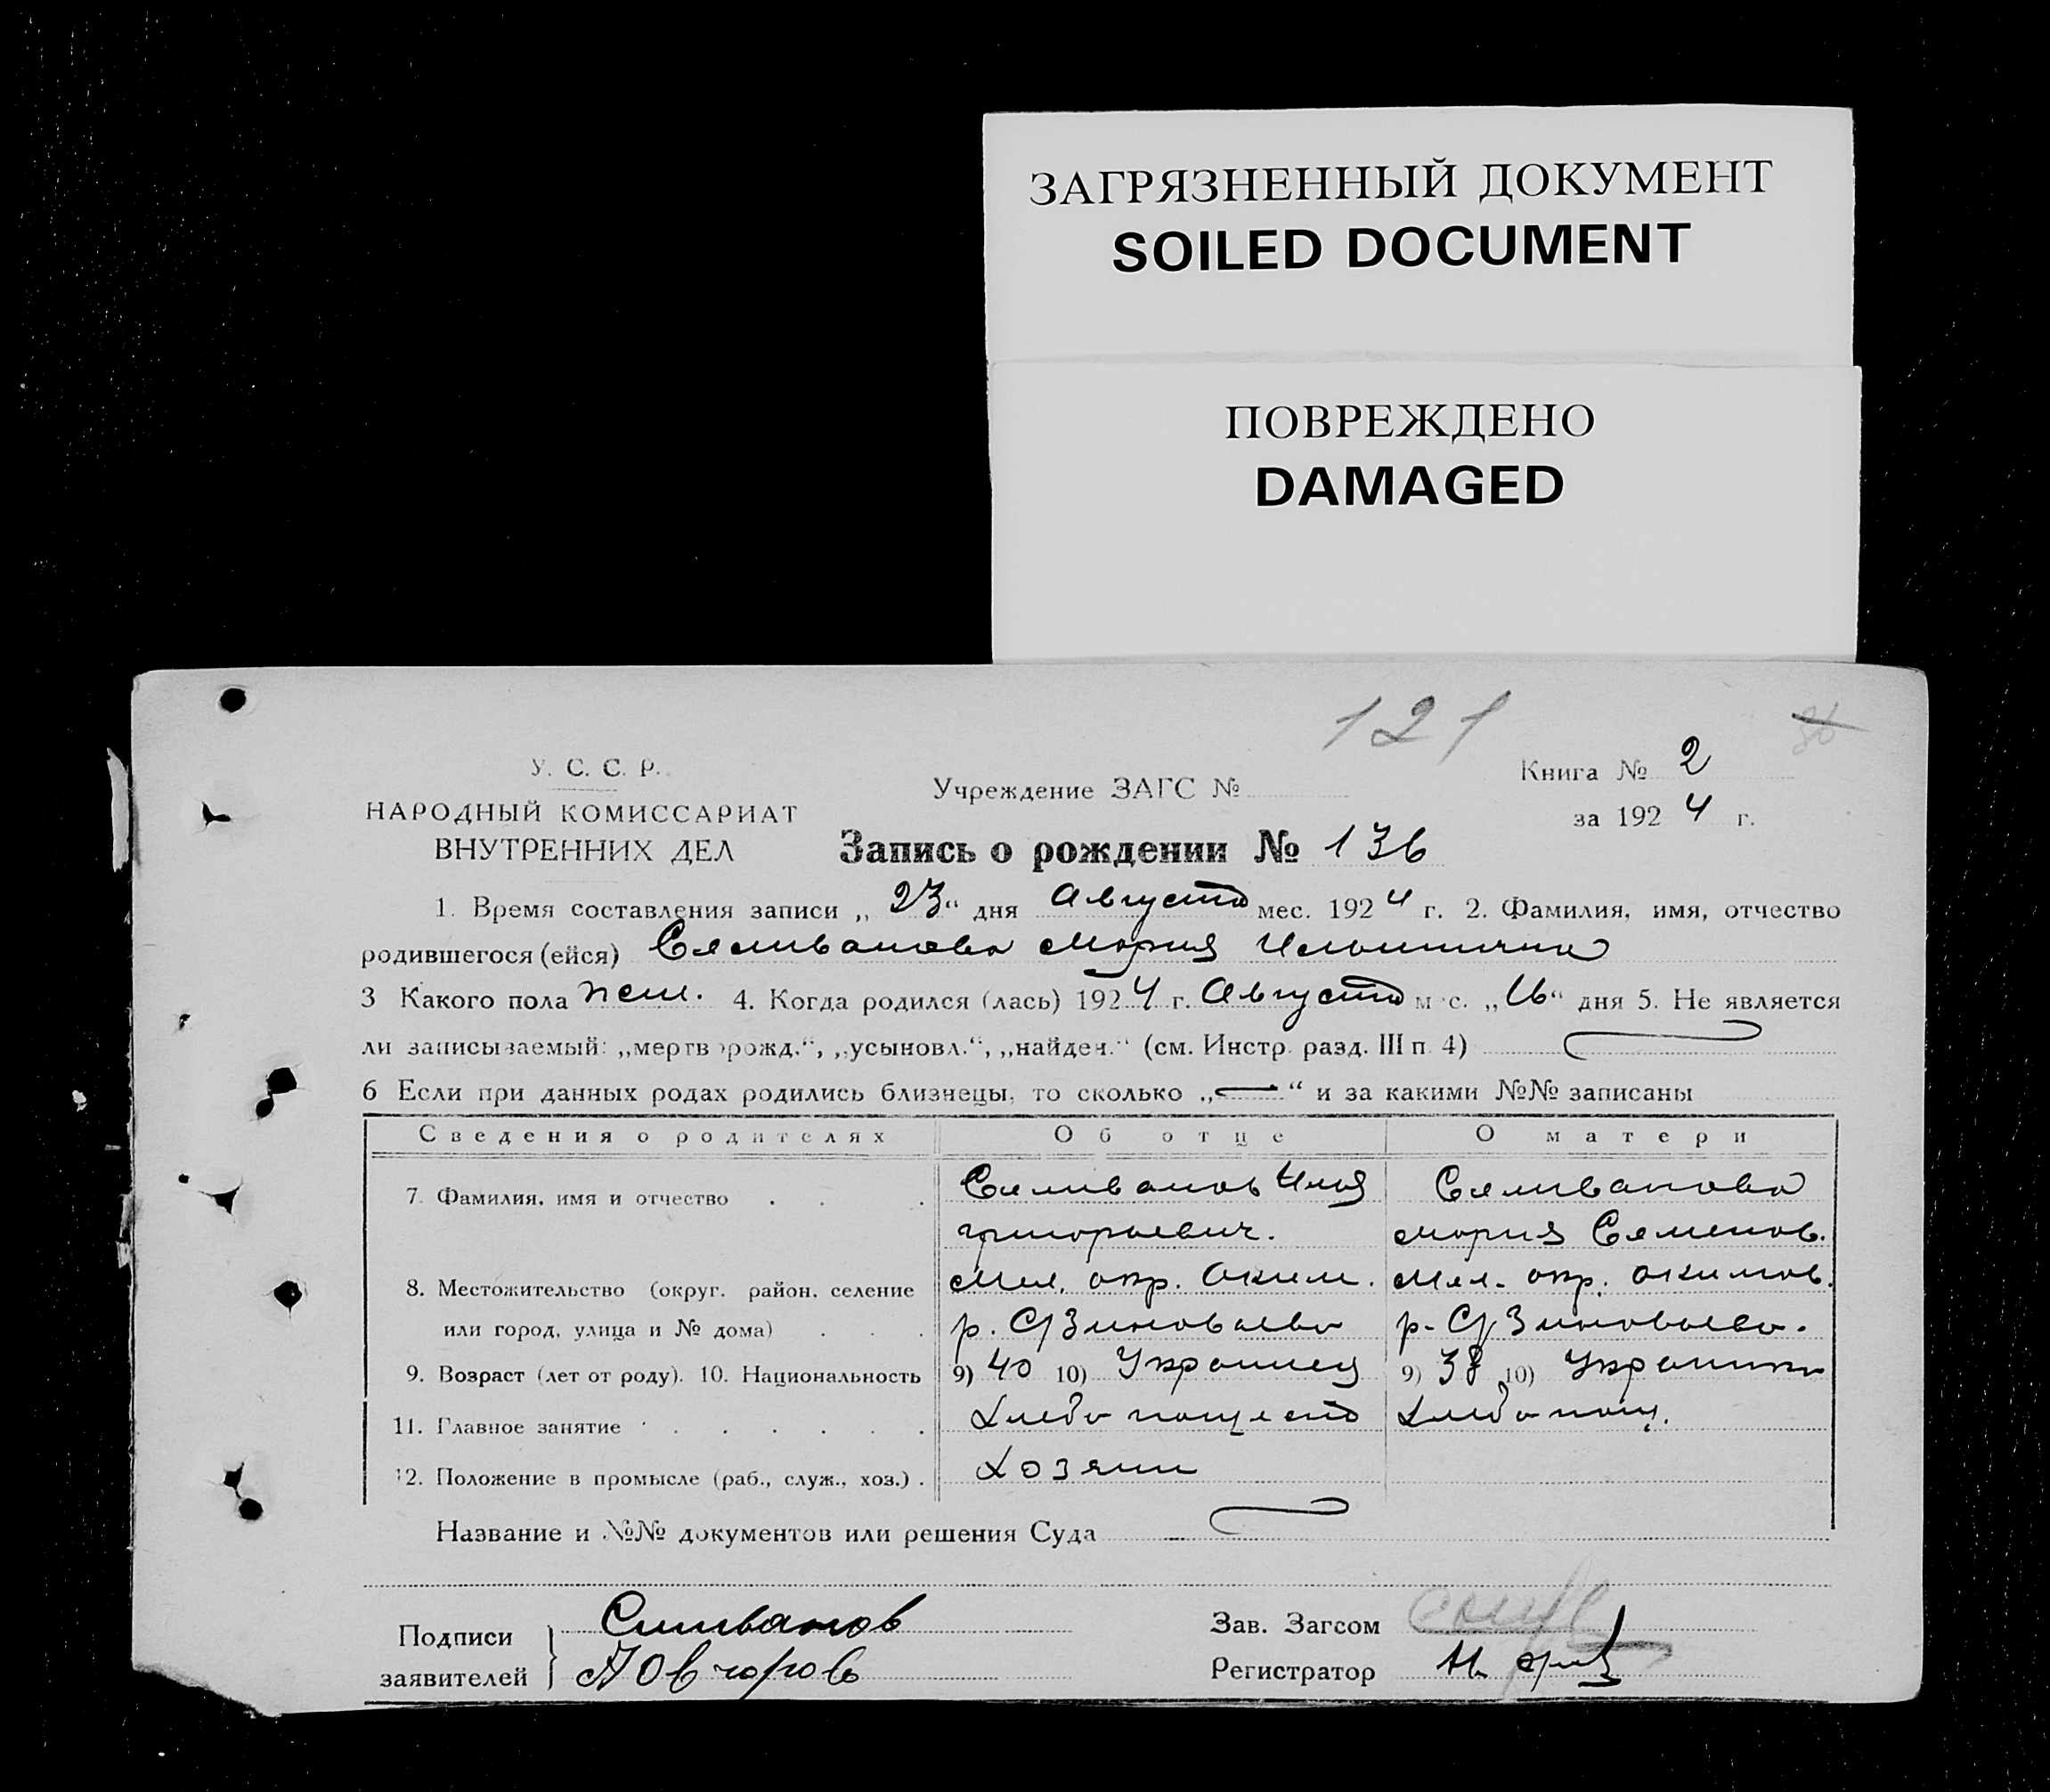 ЗАГРЯЗНЕННЫЙ ДОКУМЕНТ
SOILED DOCUMENT
ПОВРЕЖДЕНО
DAMAGED
121
У. С. С. Р.
НАРОДНЫЙ КОМИССАРИАТ
ВНУТРЕННИХ ДЕЛ
Учреждение ЗАГС №
Книга № 2
за 1924 г.
Запись о рождении № 136
1. Время составления записи „23“ дня Августа мес. 1924 г. 2. Фамилия, имя, отчество
родившегося (ейся) Селиванова Мария Ильинична
3 Какого пола жен. 4. Когда родился (лась) 1924 г. Августа мес. „16“ дня 5. Не является
ли записываемый: „мертворожд.“, „усыновл.“, „найден.“ (см. Инстр. разд. III п. 4)
6 Если при данных родах родились близнецы, то сколько „—“ и за какими №№ записаны
Сведения о родителях Об отце О матери
7. Фамилия, имя и отчество . . . Селиванов Илья Селиванова
григорьевич. Мария Семенов.
8. Местожительство (округ. район. селение Мел. окр. Аким. Мел. окр. Акимов.
или город, улица и № дома) . . . р. С/Зиновьево р. С/Зиновьево.
9. Возраст (лет от роду). 10. Национальность 9) 40 10) Украинец 9) 38 10) Украинка
11. Главное занятие . . . . . . Хлебопашество Хлебопаш.
12. Положение в промысле (раб., служ., хоз.) . Хозяин
Название и №№ документов или решения Суда
Подписи
заявителей
Силиванов
А Овчаров
Зав. Загсом
Регистратор